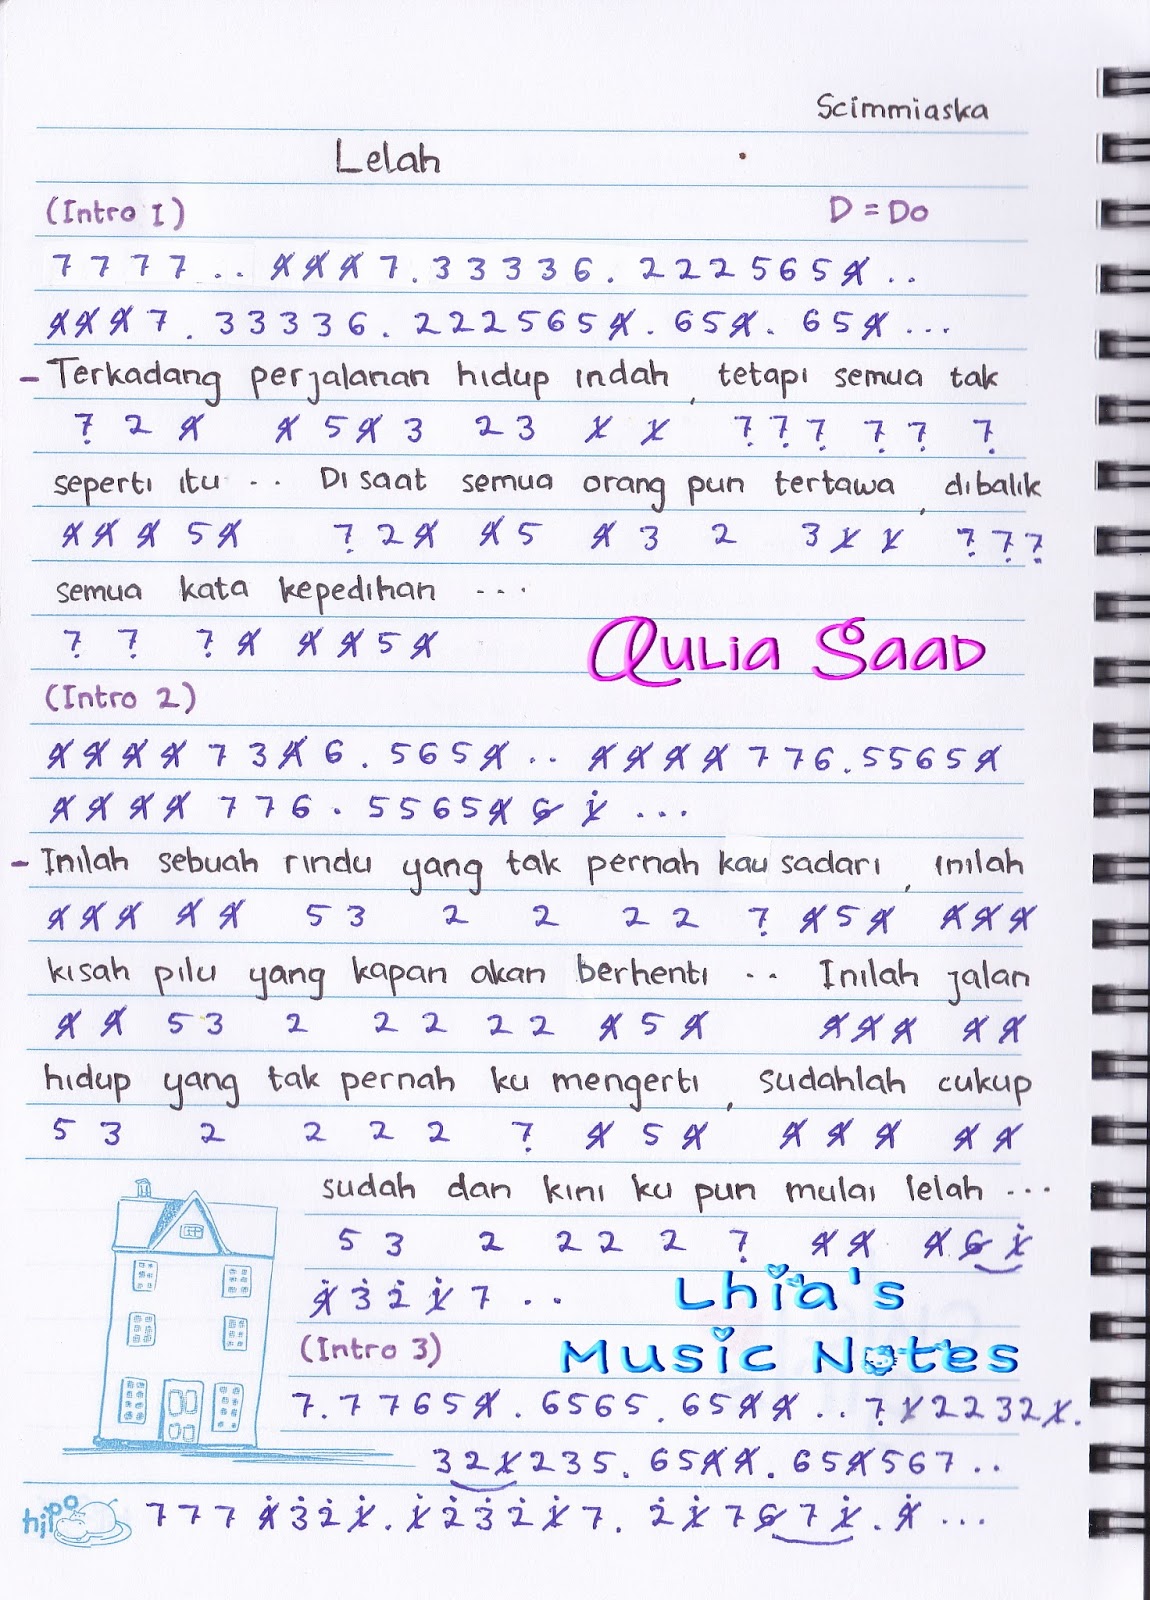 Scimmiaska
Lelah
(Intro I) D = Do
7 7 7 7 . . 4̸ 4̸ 4̸ 7 . 3 3 3 3 6 . 2 2 2 5 6 5 4̸ . .
4̸ 4̸ 4̸ 7 . 3 3 3 3 6 . 2 2 2 5 6 5 4̸ . 6 5 4̸ . 6 5 4̸ ...
- Terkadang perjalanan hidup indah, tetapi semua tak
7̣ 2 4̸ 4̸ 5 4̸ 3 2 3 1̸ 1̸ 7̣ 7̣ 7̣ 7̣ 7̣ 7̣
seperti itu .. Di saat semua orang pun tertawa, dibalik
4̸ 4̸ 4̸ 5 4̸ 7̣ 2 4̸ 4̸ 5 4̸ 3 2 3 1̸ 1̸ 7̣ 7̣ 7̣
semua kata kepedihan ...
7̣ 7̣ 7̣ 4̸ 4̸ 4̸ 5 4̸
Aulia Saad
(Intro 2)
4̸ 4̸ 4̸ 4̸ 7 3 4̸ 6 . 5 6 5 4̸ . . 4̸ 4̸ 4̸ 4̸ 7 7 6 . 5 5 6 5 4̸
4̸ 4̸ 4̸ 4̸ 7 7 6 . 5 5 6 5 4̸ 6̸ 1̸̇ ...
- Inilah sebuah rindu yang tak pernah kau sadari, inilah
4̸ 4̸ 4̸ 4̸ 4̸ 5 3 2 2 2 2 7̣ 4̸ 5 4̸ 4̸ 4̸ 4̸
kisah pilu yang kapan akan berhenti .. Inilah jalan
4̸ 4̸ 5 3 2 2 2 2 2 4̸ 5 4̸ 4̸ 4̸ 4̸ 4̸ 4̸
hidup yang tak pernah ku mengerti, sudahlah cukup
5 3 2 2 2 2 7̣ 4̸ 5 4̸ 4̸ 4̸ 4̸ 4̸ 4̸
sudah dan kini ku pun mulai lelah ...
5 3 2 2 2 2 7̣ 4̸ 4̸ 4̸ . 6̸ 1̸̇
4̸̇ 3̇ 2̇ 1̸̇ 7 . .
Lhia's
Music Notes
(Intro 3)
7 . 7 7 6 5 4̸ . 6 5 6 5 . 6 5 4̸ 4̸ . . 7̣ 1̸ 2 2 3 2 1̸ .
3 2 1̸ 2 3 5 . 6 5 4̸ 4̸ . 6 5 4̸ 5 6 7 . .
hipo
7 7 7 4̸̇ 3̇ 2̇ 1̸̇ . 1̸̇ 2̇ 3̇ 2̇ 1̸̇ 7 . 2̇ 1̸̇ 7 6̸ 7 1̸̇ . 4̸̇ ...